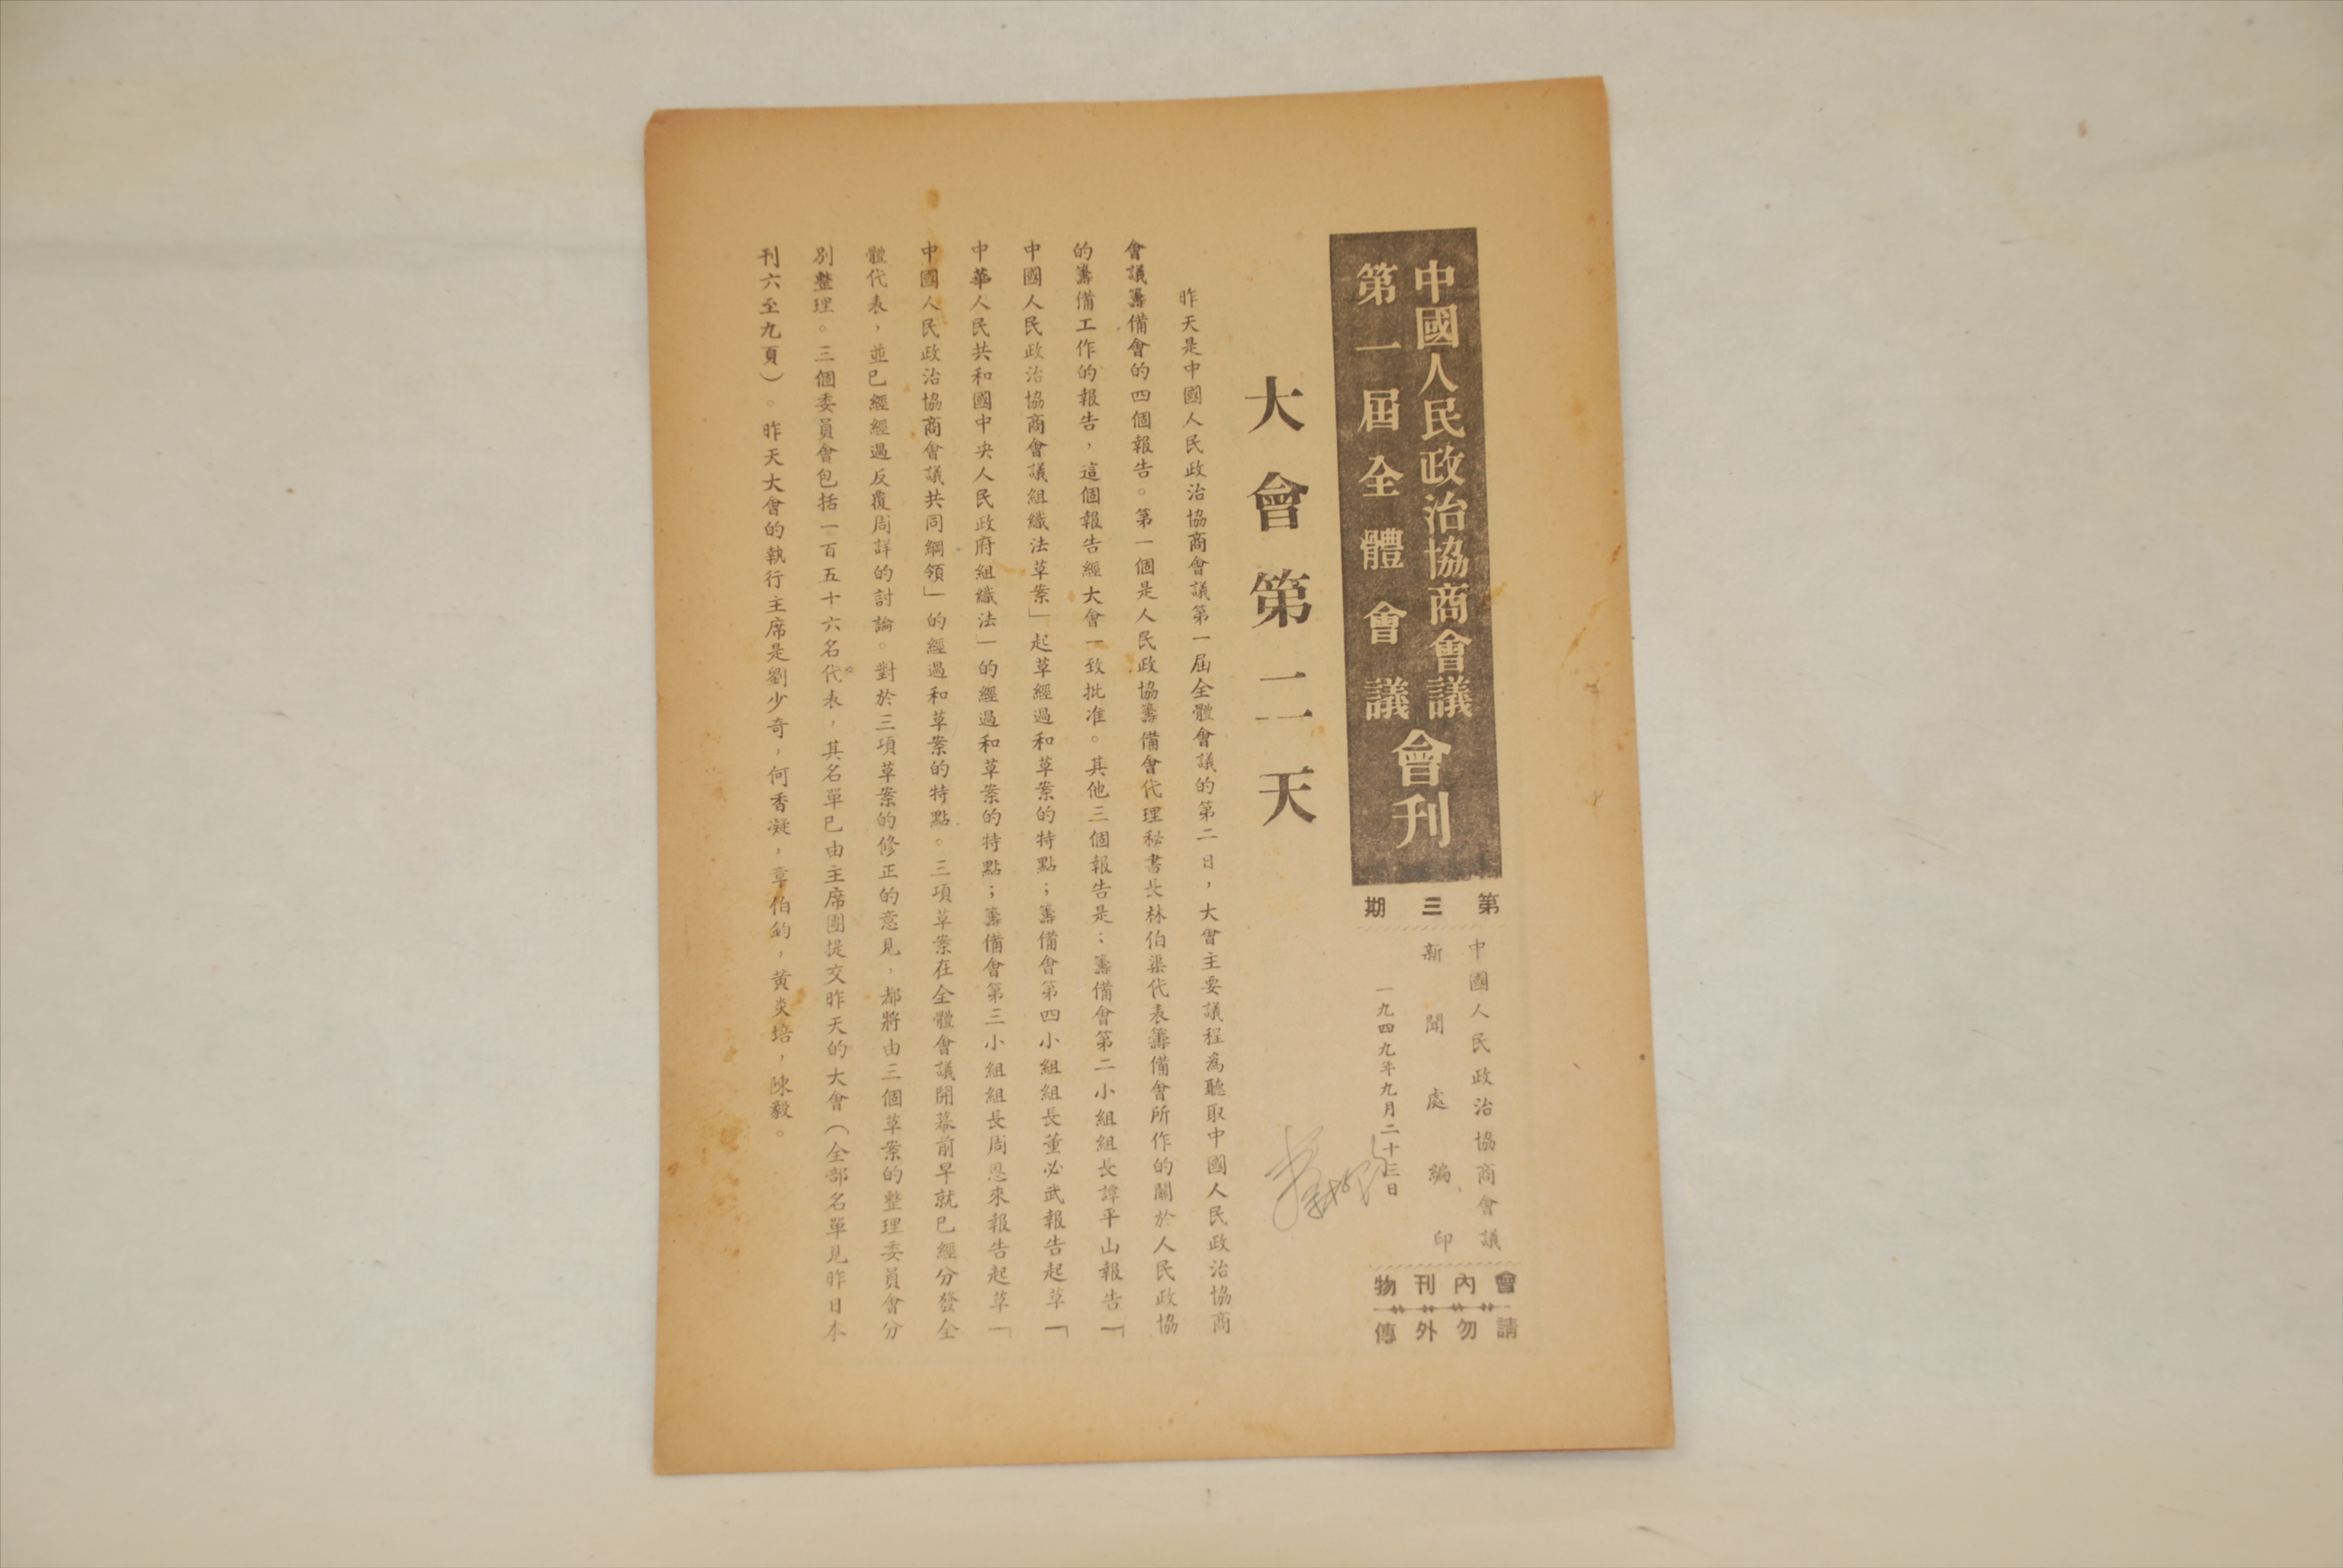 中國人民政治協商會議
第一屆全體會議
會刊
第三期
中國人民政治協商會議
新聞處編印
一九四九年九月二十三日
會內刊物
請勿外傳
大會第二天
昨天是中國人民政治協商會議第一屆全體會議的第二日，大會主要議程為聽取中國人民政治協商
會議籌備會的四個報告。第一個是人民政協籌備會代理秘書長林伯渠代表籌備會所作的關於人民政協
的籌備工作的報告，這個報告經大會一致批准。其他三個報告是：籌備會第二小組組長譚平山報告「
中國人民政治協商會議組織法草案」起草經過和草案的特點；籌備會第四小組組長董必武報告起草「
中華人民共和國中央人民政府組織法」的經過和草案的特點；籌備會第三小組組長周恩來報告起草「
中國人民政治協商會議共同綱領」的經過和草案的特點。三項草案在全體會議開幕前早就已經分發全
體代表，並已經經過反覆周詳的討論。對於三項草案的修正的意見，都將由三個草案的整理委員會分
別整理。三個委員會包括一百五十六名代表，其名單已由主席團提交昨天的大會（全部名單見昨日本
刊六至九頁）。昨天大會的執行主席是劉少奇，何香凝，章伯鈞，黃炎培，陳毅。